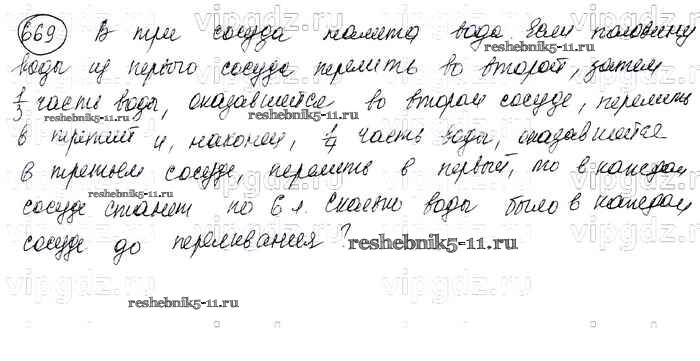 669 В три сосуда налита вода. Если половину
reshebnik5-11.ru
воды из первого сосуда перелить во второй, затем
1/3 часть воды, оказавшейся во втором сосуде, перелить
reshebnik5-11.ru
в третий и, наконец, 1/4 часть воды, оказавшейся
в третьем сосуде, перелить в первый, то в каждом
reshebnik5-11.ru
сосуде станет по 6 л. Сколько воды было в каждом
сосуде до переливания?
reshebnik5-11.ru
reshebnik5-11.ru
vipgdz.ru